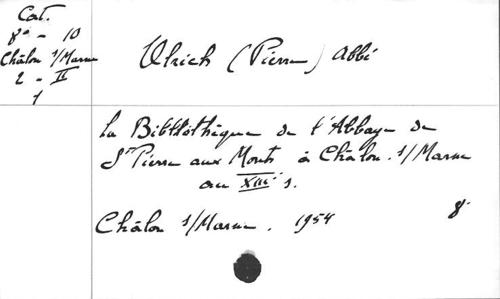 Cat.
8° - 10
Châlon s/Marne
2 - II
1
Ulrich (Pierre) Abbé
La Bibliothèque de l'Abbaye de
St Pierre aux Monts à Châlon. s/Marne
au XIII s.
Châlon s/Marne. 1954
8°